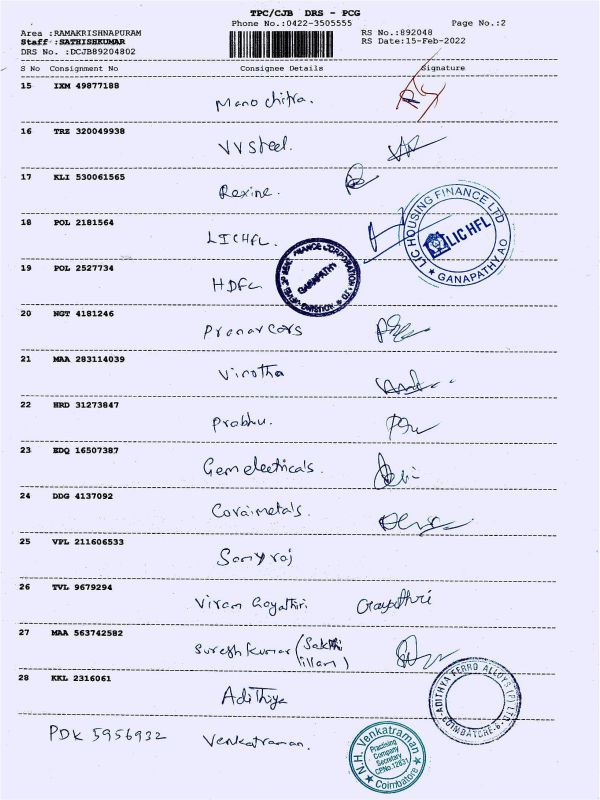 TPC/CJB DRS - PCG
Phone No.:0422-3505555 Page No.:2
Area :RAMAKRISHNAPURAM RS No.:892048
Staff :SATHISHKUMAR RS Date:15-Feb-2022
DRS No. :DCJB89204802
S No Consignment No Consignee Details Signature
15 IXM 49877188 Mano chitra.
16 TRZ 320049938 VV Steel.
17 KLI 530061565 Rexine.
18 POL 2181564 LICHFL.
LIC HOUSING FINANCE LTD
LIC HFL
★ GANAPATHY AO ★
19 POL 2527734 HDFC
GANAPATHY
20 NGT 4181246 Pranav cars
21 MAA 283114039 Vinotha
22 HRD 31273847 Prabhu.
23 EDQ 16507387 Gem electricals.
24 DDG 4137092 Covaimetals.
25 VPL 211606533
26 TVL 9679294 Gayathri Gayathri
27 MAA 563742582 Suresh kumar (Sakthi
illam)
28 KKL 2316061 Adithya
ADITHYA FERRO ALLOYS (P) LTD.
COIMBATORE-6
PDK 5956932 Venkatraman.
N.H. Venkatraman
Practising
Company
Secretary
CPNo.12831
Coimbatore